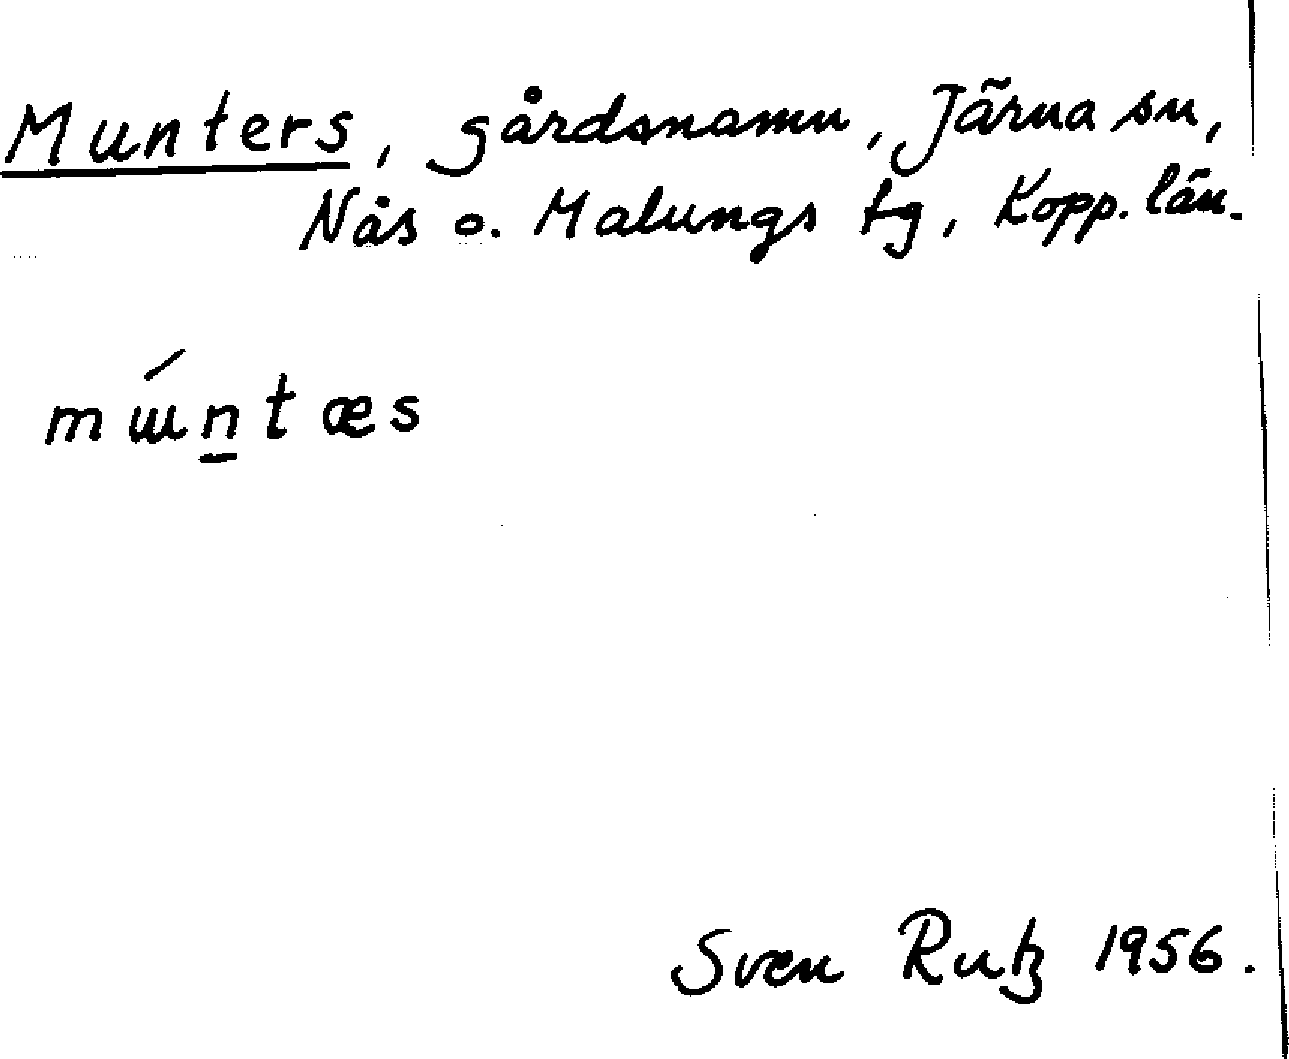 Munters, gårdsnamn, Järna sn,
Nås o. Malungs tg, Kopp. län.
mɯ́n̲tæs
Sven Rutz 1956.